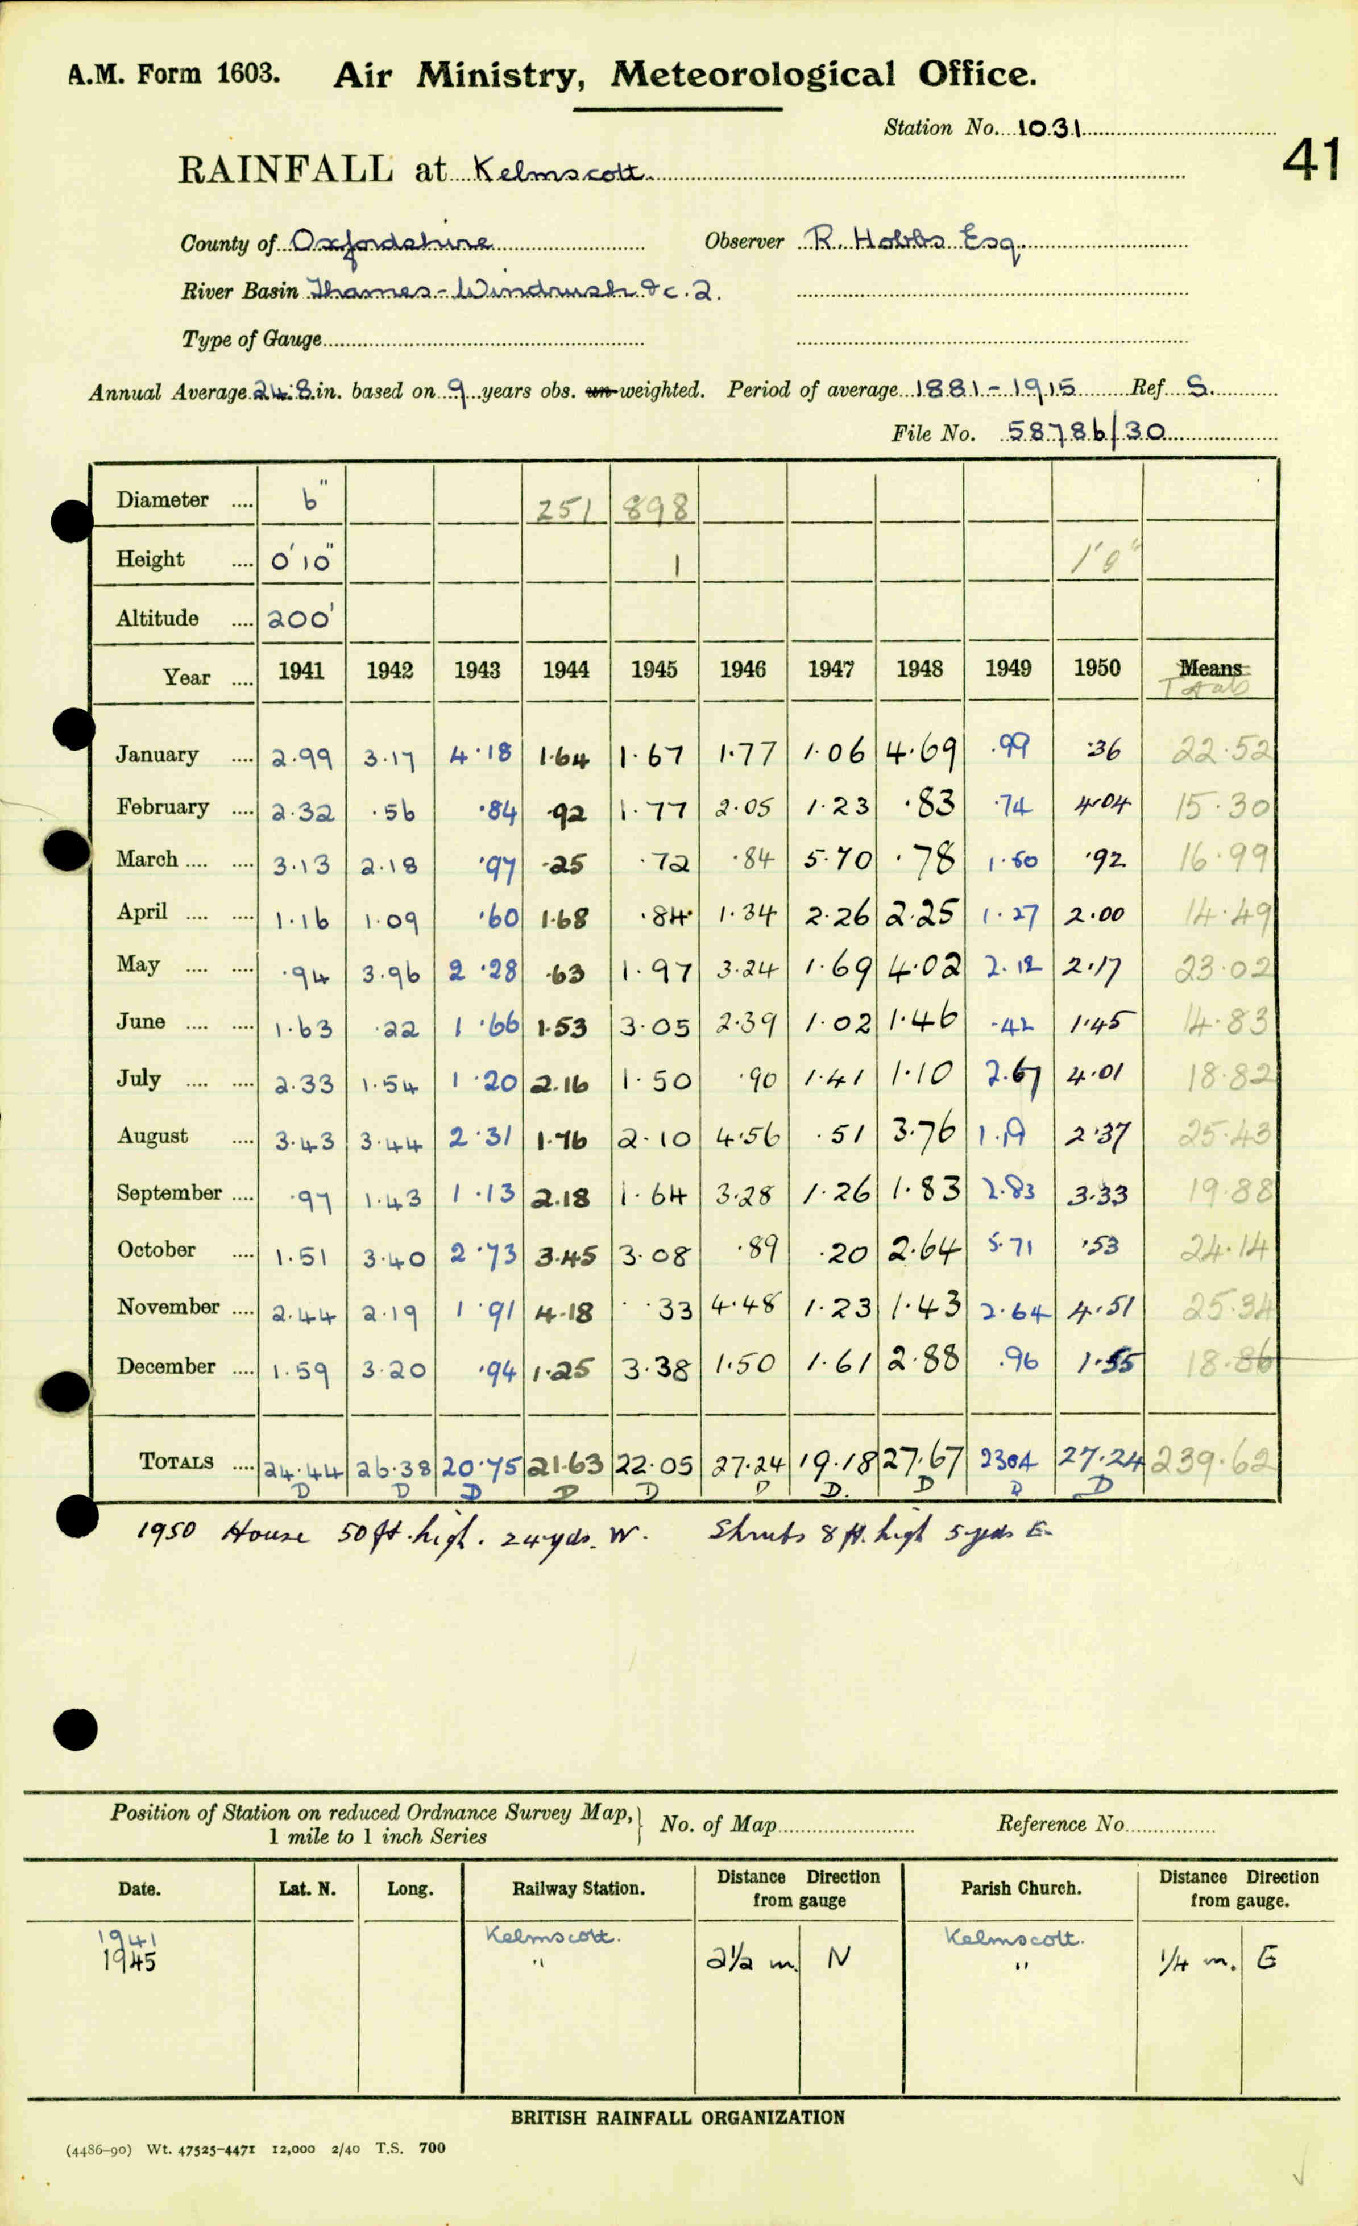 A.M. Form 1603. Air Ministry, Meteorological Office.
Station No. 1031
41
RAINFALL at Kelmscott
County of Oxfordshire Observer R. Hobbs Esq.
River Basin Thames - Windrush &c. 2.
Type of Gauge
Annual Average 24.8 in. based on 9 years obs. un-weighted. Period of average 1881-1915 Ref S.
File No. 58786/30
Diameter .... 6" 251 898
Height .... 0' 10" 1 1' 0"
Altitude .... 200'
Year .... 1941 1942 1943 1944 1945 1946 1947 1948 1949 1950 Means
Totals
January .... 2.99 3.17 4.18 1.64 1.67 1.77 1.06 4.69 .99 .36 22.52
February .... 2.32 .56 .84 .92 1.77 2.05 1.23 .83 .74 4.04 15.30
March .... .... 3.13 2.18 .97 .25 .72 .84 5.70 .78 1.50 .92 16.99
April .... .... 1.16 1.09 .60 1.68 .84 1.34 2.26 2.25 1.27 2.00 14.49
May .... .... .94 3.96 2.28 .63 1.97 3.24 1.69 4.02 2.12 2.17 23.02
June .... .... 1.63 .22 1.66 1.53 3.05 2.39 1.02 1.46 .42 1.45 14.83
July .... .... 2.33 1.54 1.20 2.16 1.50 .90 1.41 1.10 2.67 4.01 18.82
August .... 3.43 3.44 2.31 1.76 2.10 4.56 .51 3.76 1.19 2.37 25.43
September .... .97 1.43 1.13 2.18 1.64 3.28 1.26 1.83 2.83 3.33 19.88
October .... 1.51 3.40 2.73 3.45 3.08 .89 .20 2.64 5.71 .53 24.14
November .... 2.44 2.19 1.91 4.18 .33 4.48 1.23 1.43 2.64 4.51 25.34
December .... 1.59 3.20 .94 1.25 3.38 1.50 1.61 2.88 .96 1.55 18.86
TOTALS .... 24.44 26.38 20.75 21.63 22.05 27.24 19.18 27.67 23.04 27.24 239.62
D D D D D D D. D D D
1950 House 50 ft. high. 24 yds. W. Shrubs 8 ft. high 5 yds E.
Position of Station on reduced Ordnance Survey Map, } No. of Map Reference No.
1 mile to 1 inch Series
Date. Lat. N. Long. Railway Station. Distance Direction from gauge Parish Church. Distance Direction from gauge.
1941 Kelmscott. Kelmscott.
1945 " 2½ m. N " ¼ m. E
BRITISH RAINFALL ORGANIZATION
(4486-90) Wt. 47525-4471 12,000 2/40 T.S. 700